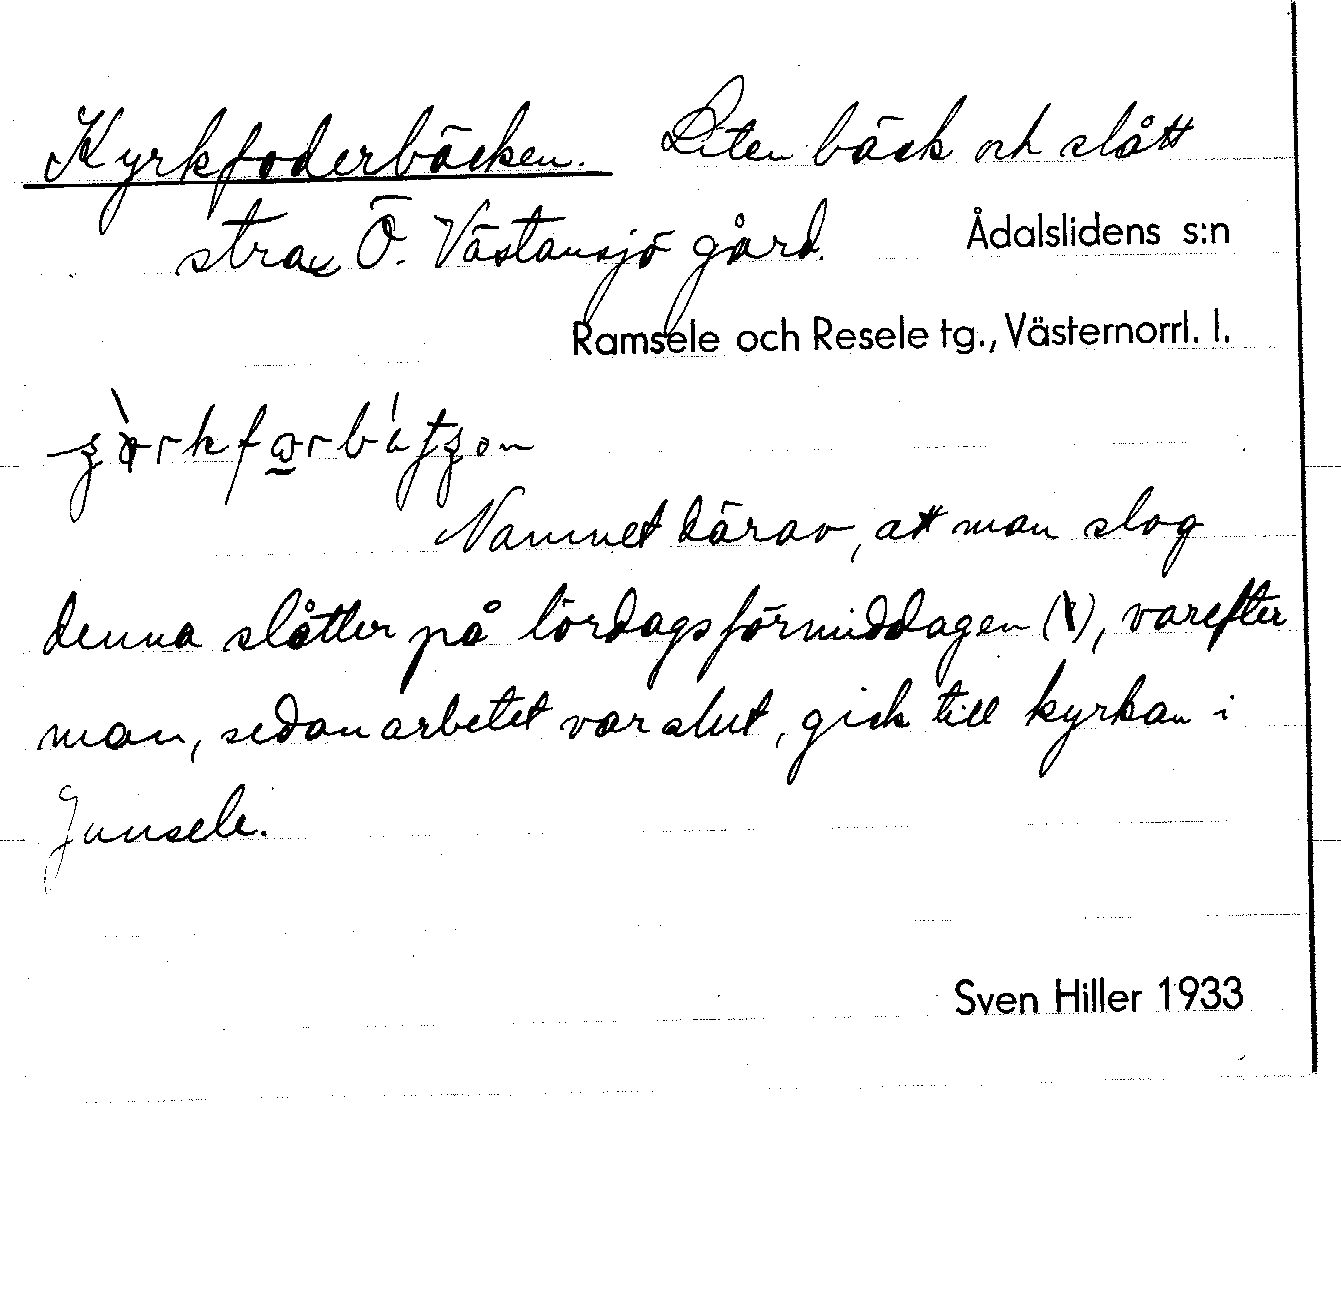 Kyrkfoderbäcken. Liten bäck och slått
strax Ö. Västansjö gård.
Ådalslidens s:n
Ramsele och Resele tg., Västernorrl. l.
Namnet därav, att man slog
denna slåtter på lördagsförmiddagen (!), varefter
man, sedan arbetet var slut, gick till kyrkan i
Junsele.
Sven Hiller 1933